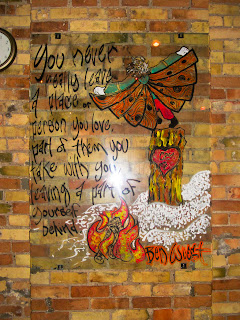 You never
really leave
a place or
person you love,
part of them you
take with you
leaving a part of
yourself
behind.